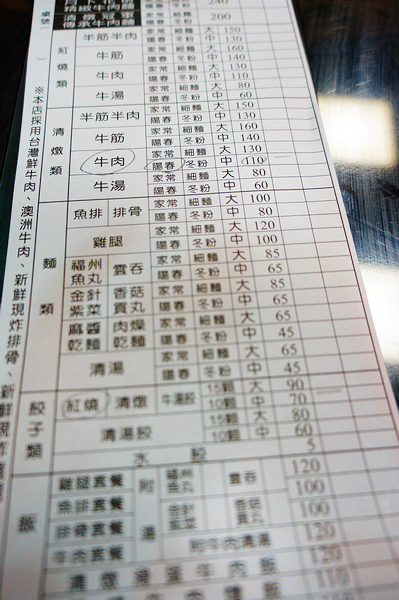 240
精緻牛肉麵
清燉冠軍 200
傳承牛肉
桌號：
紅燒類
半筋半肉 家常 細麵 大 150
陽春 冬粉 中 130
牛筋 家常 細麵 大 160
陽春 冬粉 中 140
牛肉 家常 細麵 大 130
陽春 冬粉 中 110
牛湯 家常 細麵 大 80
陽春 冬粉 中 60
清燉類
半筋半肉 家常 細麵 大 150
陽春 冬粉 中 130
牛筋 家常 細麵 大 160
陽春 冬粉 中 140
牛肉 家常 細麵 大 130
陽春 冬粉 中 110
牛湯 家常 細麵 大 80
陽春 冬粉 中 60
麵類
魚排 排骨 家常 細麵 大 100
陽春 冬粉 中 80
雞腿 家常 細麵 大 120
陽春 冬粉 中 100
福州魚丸 雲吞 家常 細麵 大 85
陽春 冬粉 中 65
金針紫菜 香菇貢丸 家常 細麵 大 85
陽春 冬粉 中 65
麻醬乾麵 肉燥乾麵 家常 細麵 大 65
陽春 冬粉 中 45
清湯 家常 細麵 大 65
陽春 冬粉 中 45
餃子類
紅燒 清燉 牛湯餃 15顆 大 90
10顆 中 70
清湯餃 15顆 大 80
10顆 中 60
水餃 5
飯
雞腿套餐 附湯 福州魚丸 雲吞 120
魚排套餐 100
排骨套餐 金針紫菜 香菇貢丸 100
120
牛肉套餐 附牛肉清湯 120
清燉滑蛋牛肉飯 110
100
※本店採用台灣鮮牛肉、澳洲牛肉、新鮮現炸排骨、新鮮